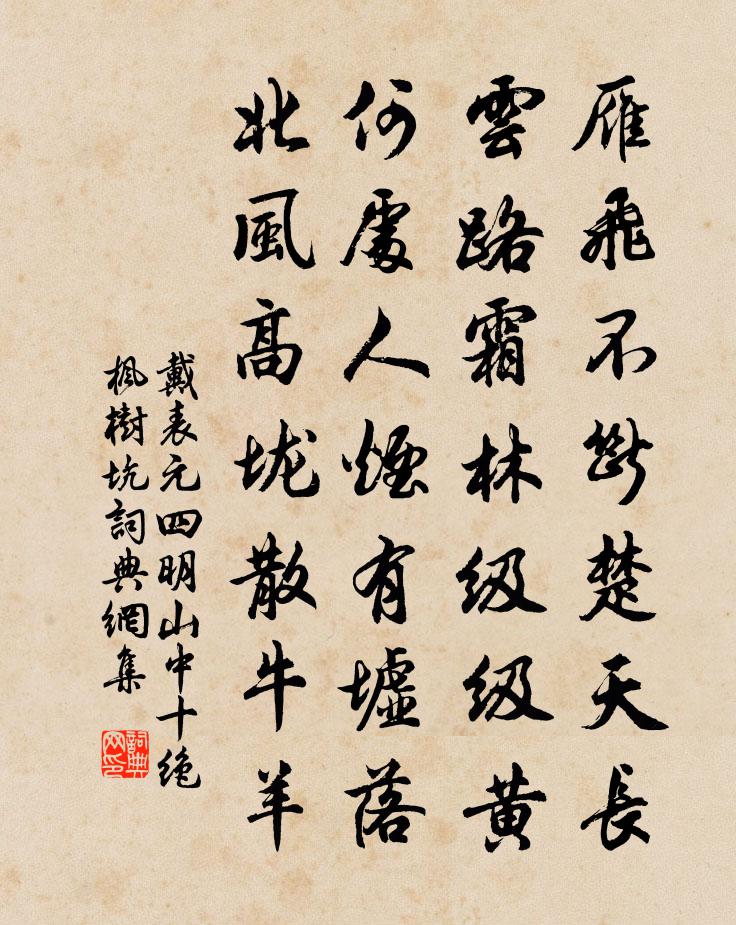 雁飛不斷楚天長
雲路霜林级级黄
何處人煙有墟落
北風高垅散牛羊
戴表元四明山中十絶
楓樹坑詞典網集
詞典网印